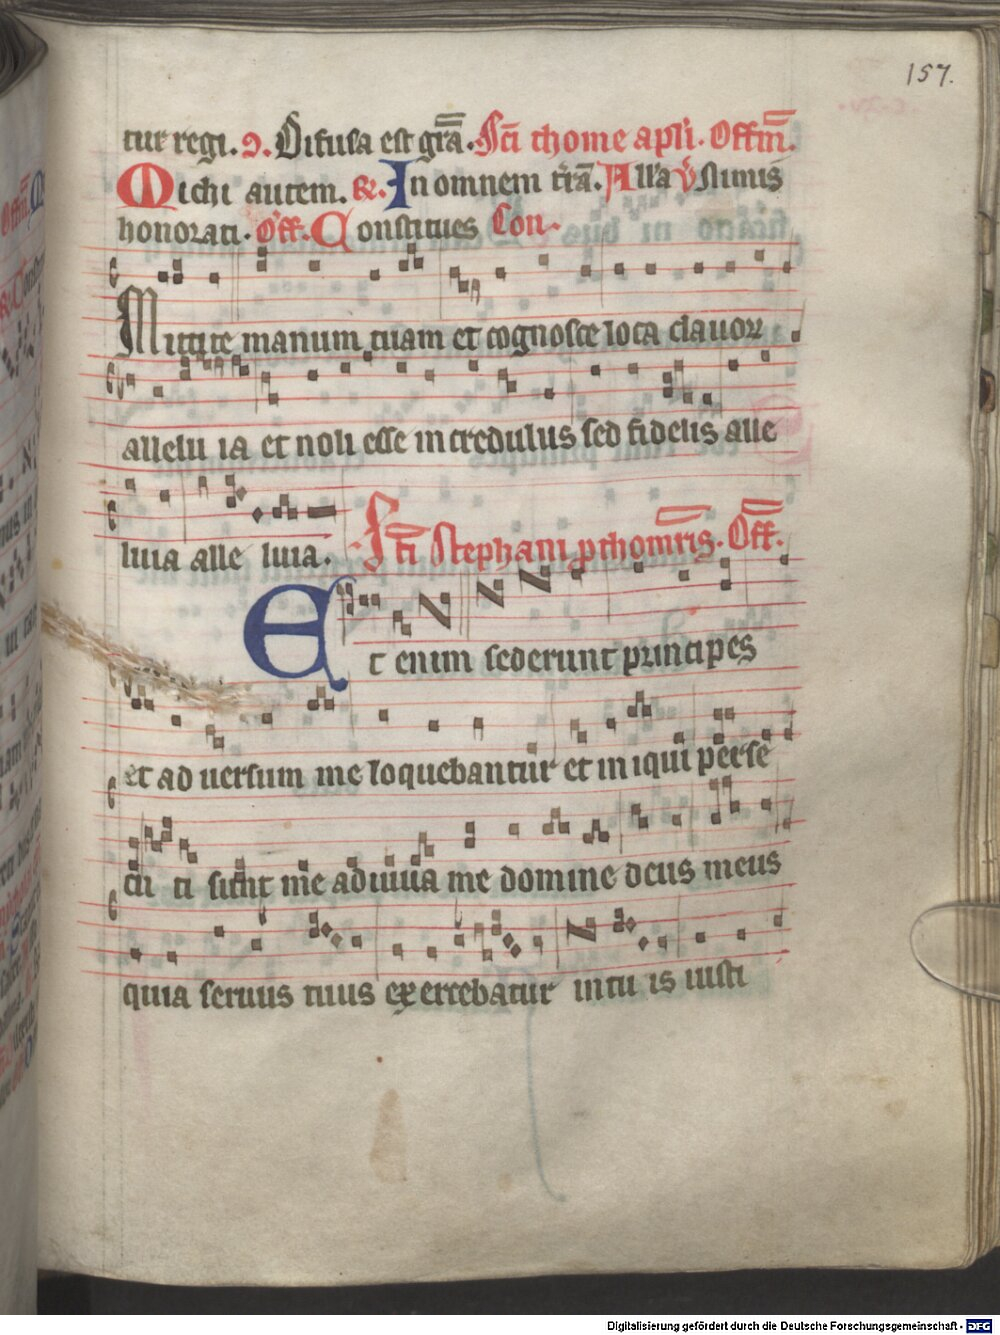 157.
tur regi. Ꝯ. Difusa est gr̄a. Sc̄i thome apl̄i. Offm̄.
Michi autem. R. In omnem tr̄a. All'a v̄ Nimis
honorati. Off. Constitues Con.
Mittite manum tuam et cognosce loca clauoꝝ
allelu ia et noli esse incredulus sed fidelis alle
luia alle luia. Sc̄i Stephani ꝓthom̄ris. Off̄.
Et enim sederunt principes
et ad uersum me loquebantur et iniqui perse
cu ti sunt me adiuua me domine deus meus
quia seruus tuus exercebatur in tu is iusti
Digitalisierung gefördert durch die Deutsche Forschungsgemeinschaft - DFG